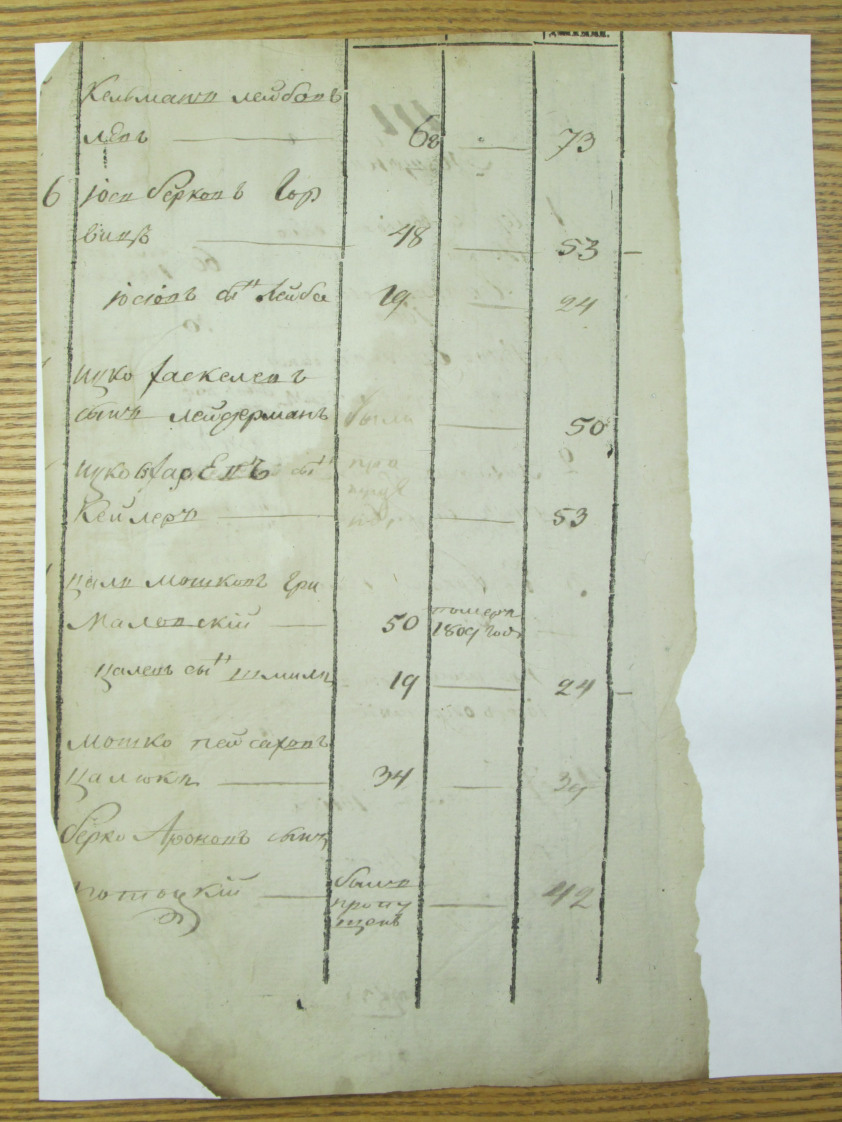 Кельманъ лейбовъ
левъ 68 73
6 Іосъ берковъ Гор
вицъ 48 53
Іосіовъ сынъ лейба 19 24
ицко хаскелевъ
сынъ лейдерманъ былъ 50
ицко харевъ сынъ про
Кейлеръ 53
цаль мошковъ Гри
Маловскій 50 померъ 1809 года
цалевъ сынъ шмиль 19 24
мошко пейсаховъ
цалюкъ 34 39
берко Ароновъ сынъ
потоцкій былъ 42
пропу
щенъ